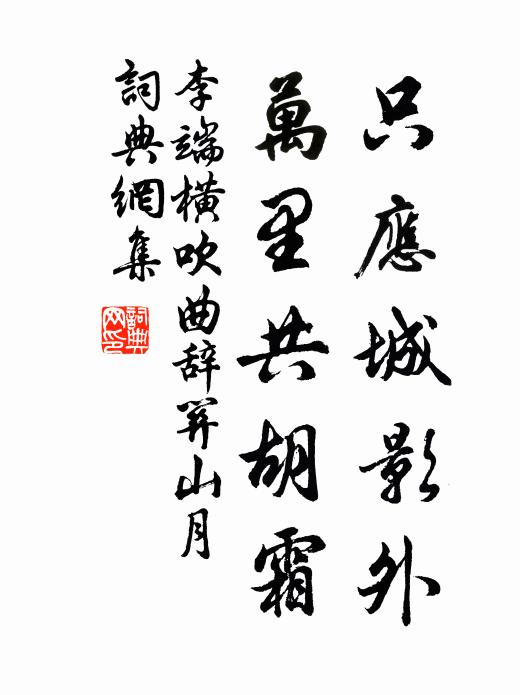 只應城影外
萬里共胡霜
李端橫吹曲辞關山月
詞典網集
詞典网印